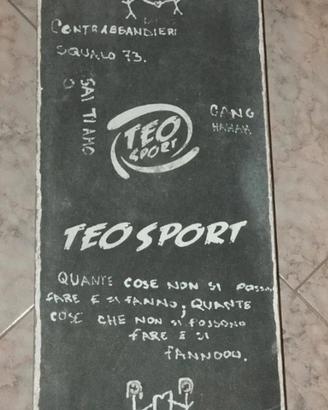 CONTRABBANDIERI
SQUALO 73.
SAI TI AMO
GANG
HAHAH
TEO
SPORT
TEO SPORT
QUANTE COSE NON SI POSSONO
FARE E SI FANNO, QUANTE
COSE CHE NON SI POSSONO
FARE E SI
FANNOOO.